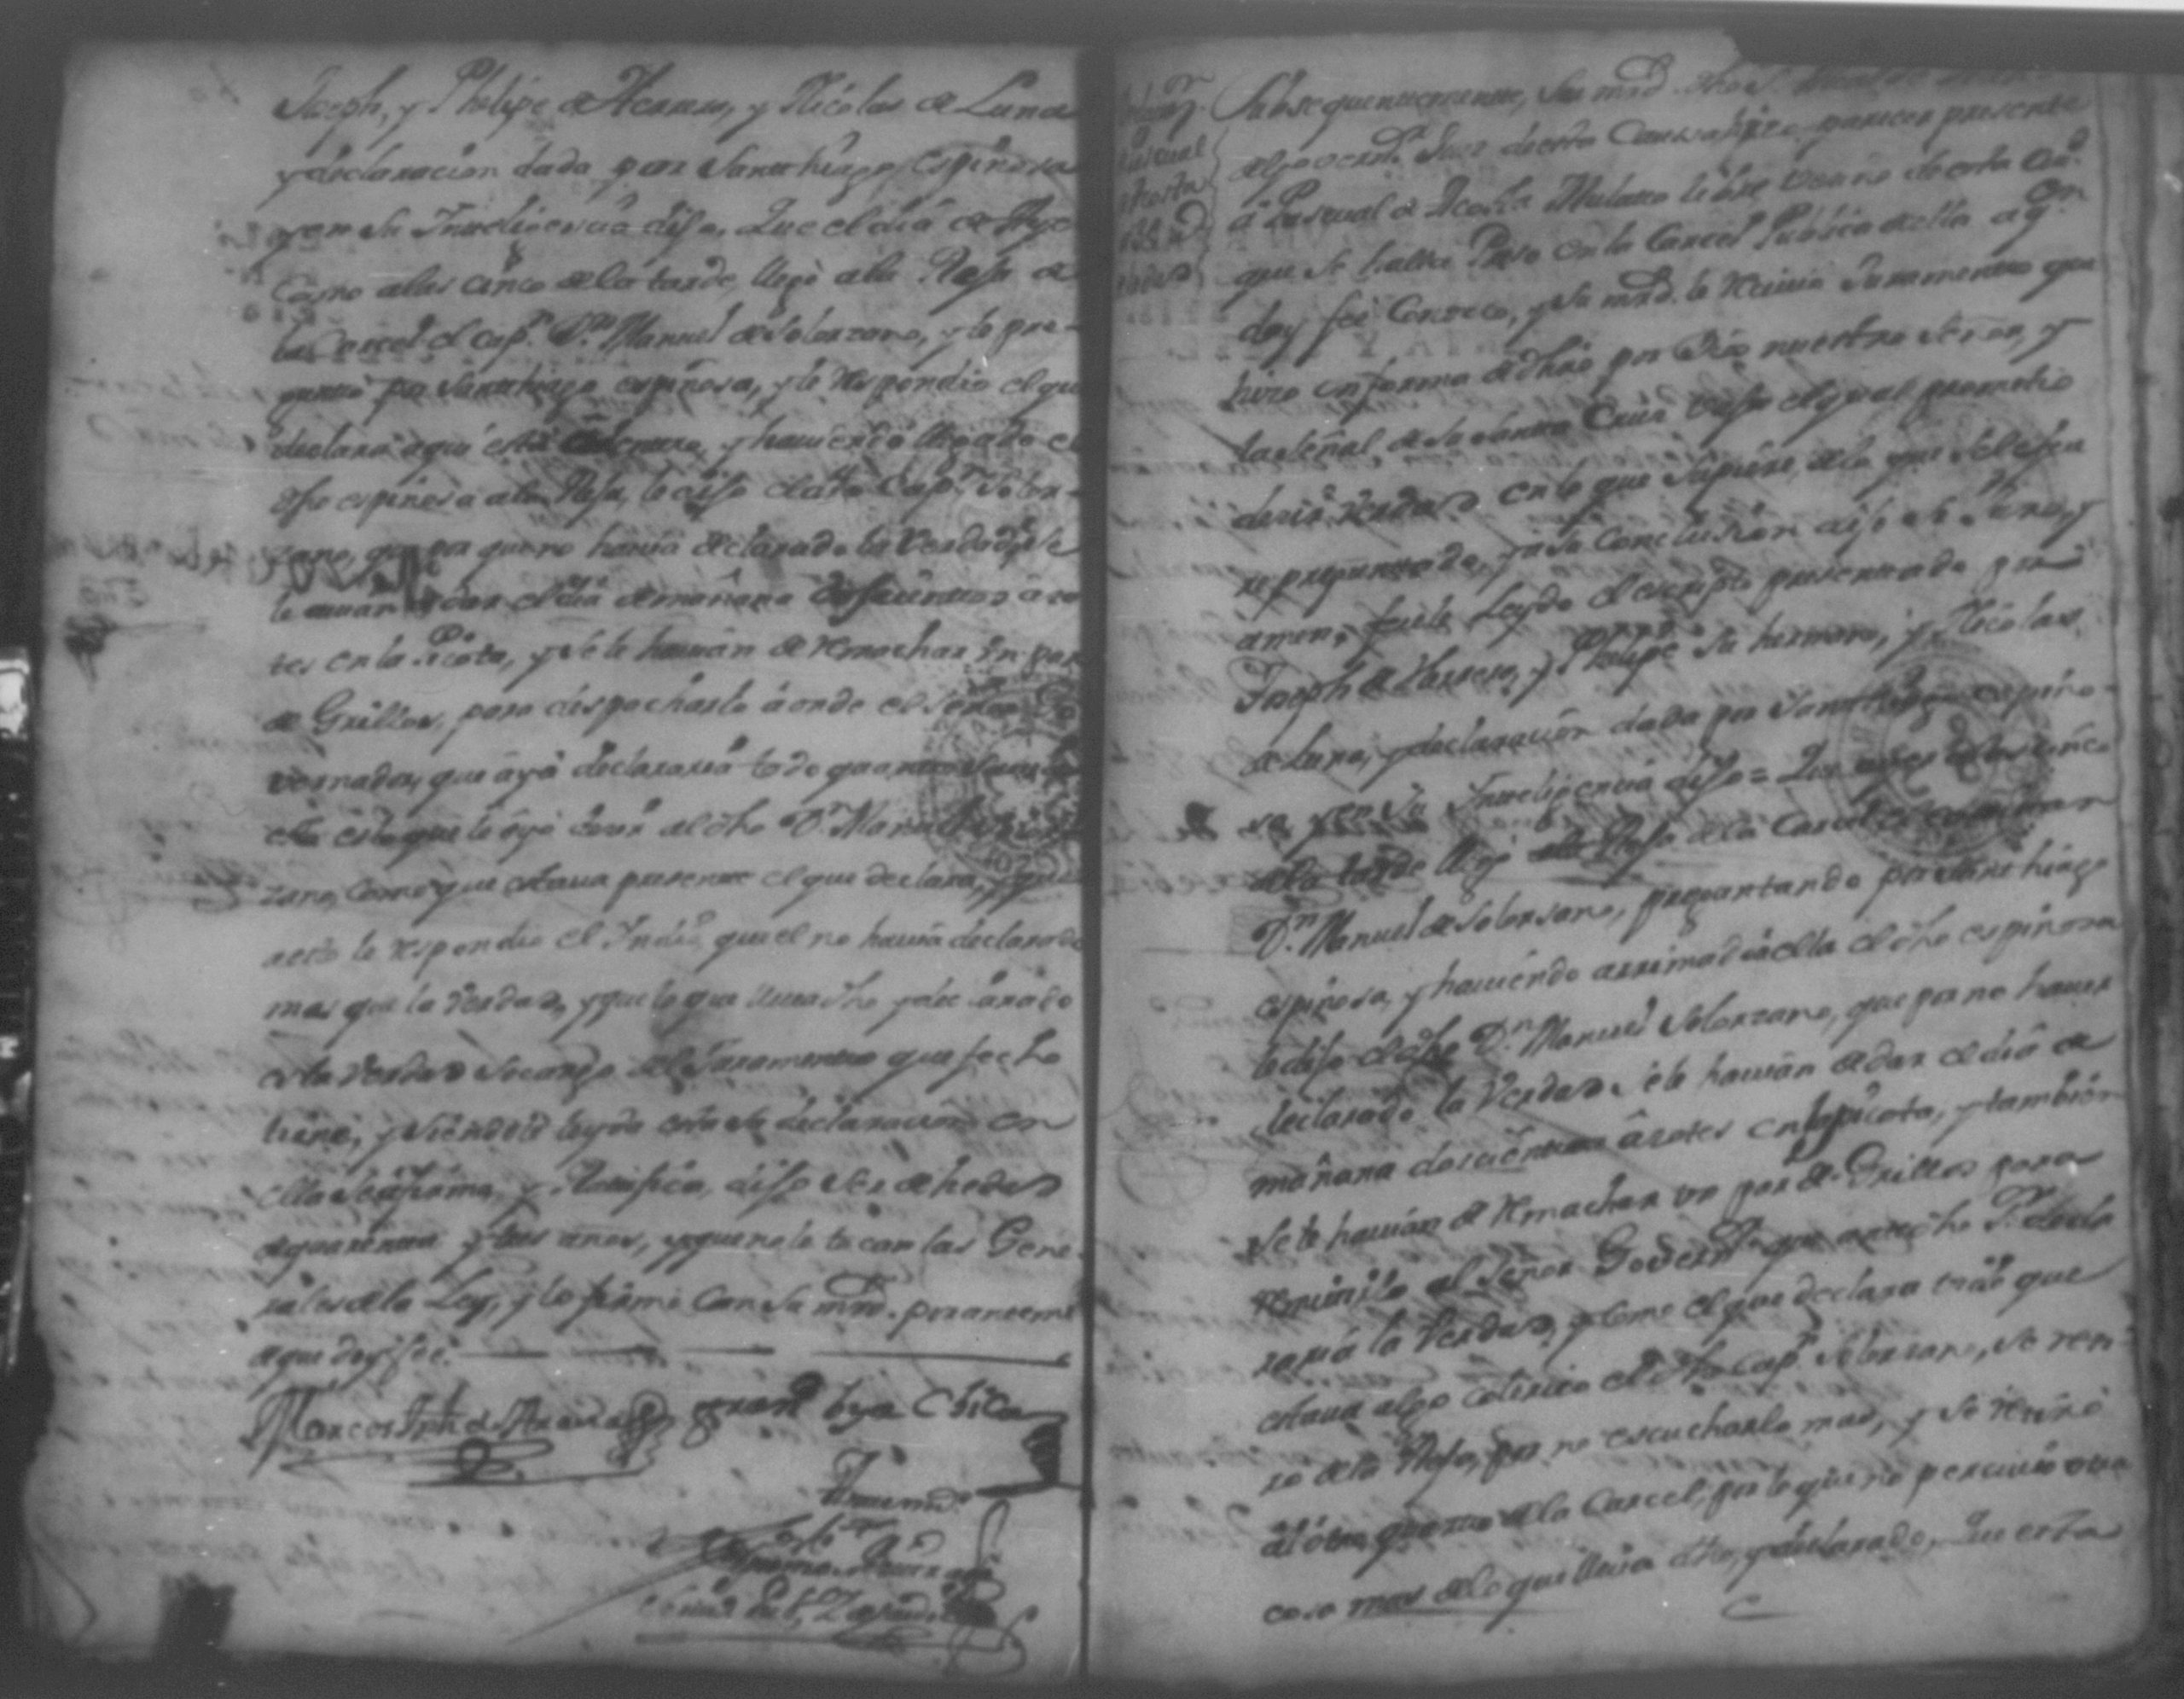 Joseph, y Phelipe de Herrera, y Nicolas de Luna
y declaracion dada por Santhiago espinosa
y en su Inteligencia dijo, Que el dia de Aye
Como a las cinco de la tarde, llegò a la Reja de
la Carcel el Cap.n D.n Manuel de Solorzano, y le pre-
guntò por Santhiago espinosa, y le respondio el que
declara aqui està, y haviendo llegado el
dho espinosa a la Reja, le dijo el dho Cap.n Solor-
zano, que por que no havia declarado la Verdad, se
le avian de dar el dia de mañana Doscientos azo
tes en la Picota, y se le havian de remachar Un par
de Grillos, para despacharlo a onde el Señor
vernador, que aya declararia todo quanto
esto es lo que le oyò decir al dho D.n Manuel
zano, Como que estava presente el que declara, y que
a esto le respondio el Indio, que el no havia declarado
mas que la Verdad, y que lo que lleva dho y declarado
es la Verdad So cargo del Juramento que fecho
tiene, y siendole leyda esta su declaracion en
ella se afirma, y Ratifica, dijo ser de hedad
de quarenta y tres años, y que no le tocan las Gene-
rales de la Ley, y lo firmò Con Su mrd. por ante mi
de que doy feè.
Marcos
Ante mi
Pub.co
Subsequentemente, Su mrd dho S.r
Juez de esta Causa hizo parecer presente
à Pasqual de Acosta Mulato libre Vecino de esta Ciu.d
que se halla Preso en la Carcel Publica de ella a q.n
doy feè Conosco, y Su mrd. le recivio Juramento que
hizo en forma de dro por Dios nuestro Señor, y
la señal de la Santa Cruz vajo el qual prometio
decir Verdad en lo que Supiere, de lo que se le fuere
re preguntado, y a su Conclusion dijo si Juro, y
amen, fuele Leydo el escripto presentado por
Joseph de Herrera, y Phelipe Su hermano, y Nicolas
de Luna, y declaracion dada por Santhiago espino-
sa, y en su Inteligencia dijo = Que a las cinco
de la tarde llegò a la Reja de la Carcel
D.n Manuel de Solorzano, preguntando por Santhiago
espinosa, y haviendo arrimado a ella el dho espinosa
le dijo el dho D.n Manuel Solorzano, que por no haver
declarado la Verdad Se le havian de dar el dia de
mañana doscientos àzotes en la picota, y tambien
Se le havian de remachar un par de Grillos para
remitirlo al Señor Govern.or que ante dho S.r decla
raria la Verdad, y como el que declara vido que
estava algo colerico el dho Cap.n Solorzano, se reti
rò de la Reja, por no escucharle mas, y se retirò
àl otro quarto de la Carcel, por lo que no percivio otra
cosa mas de lo que lleva dho, y declarado, Que esta